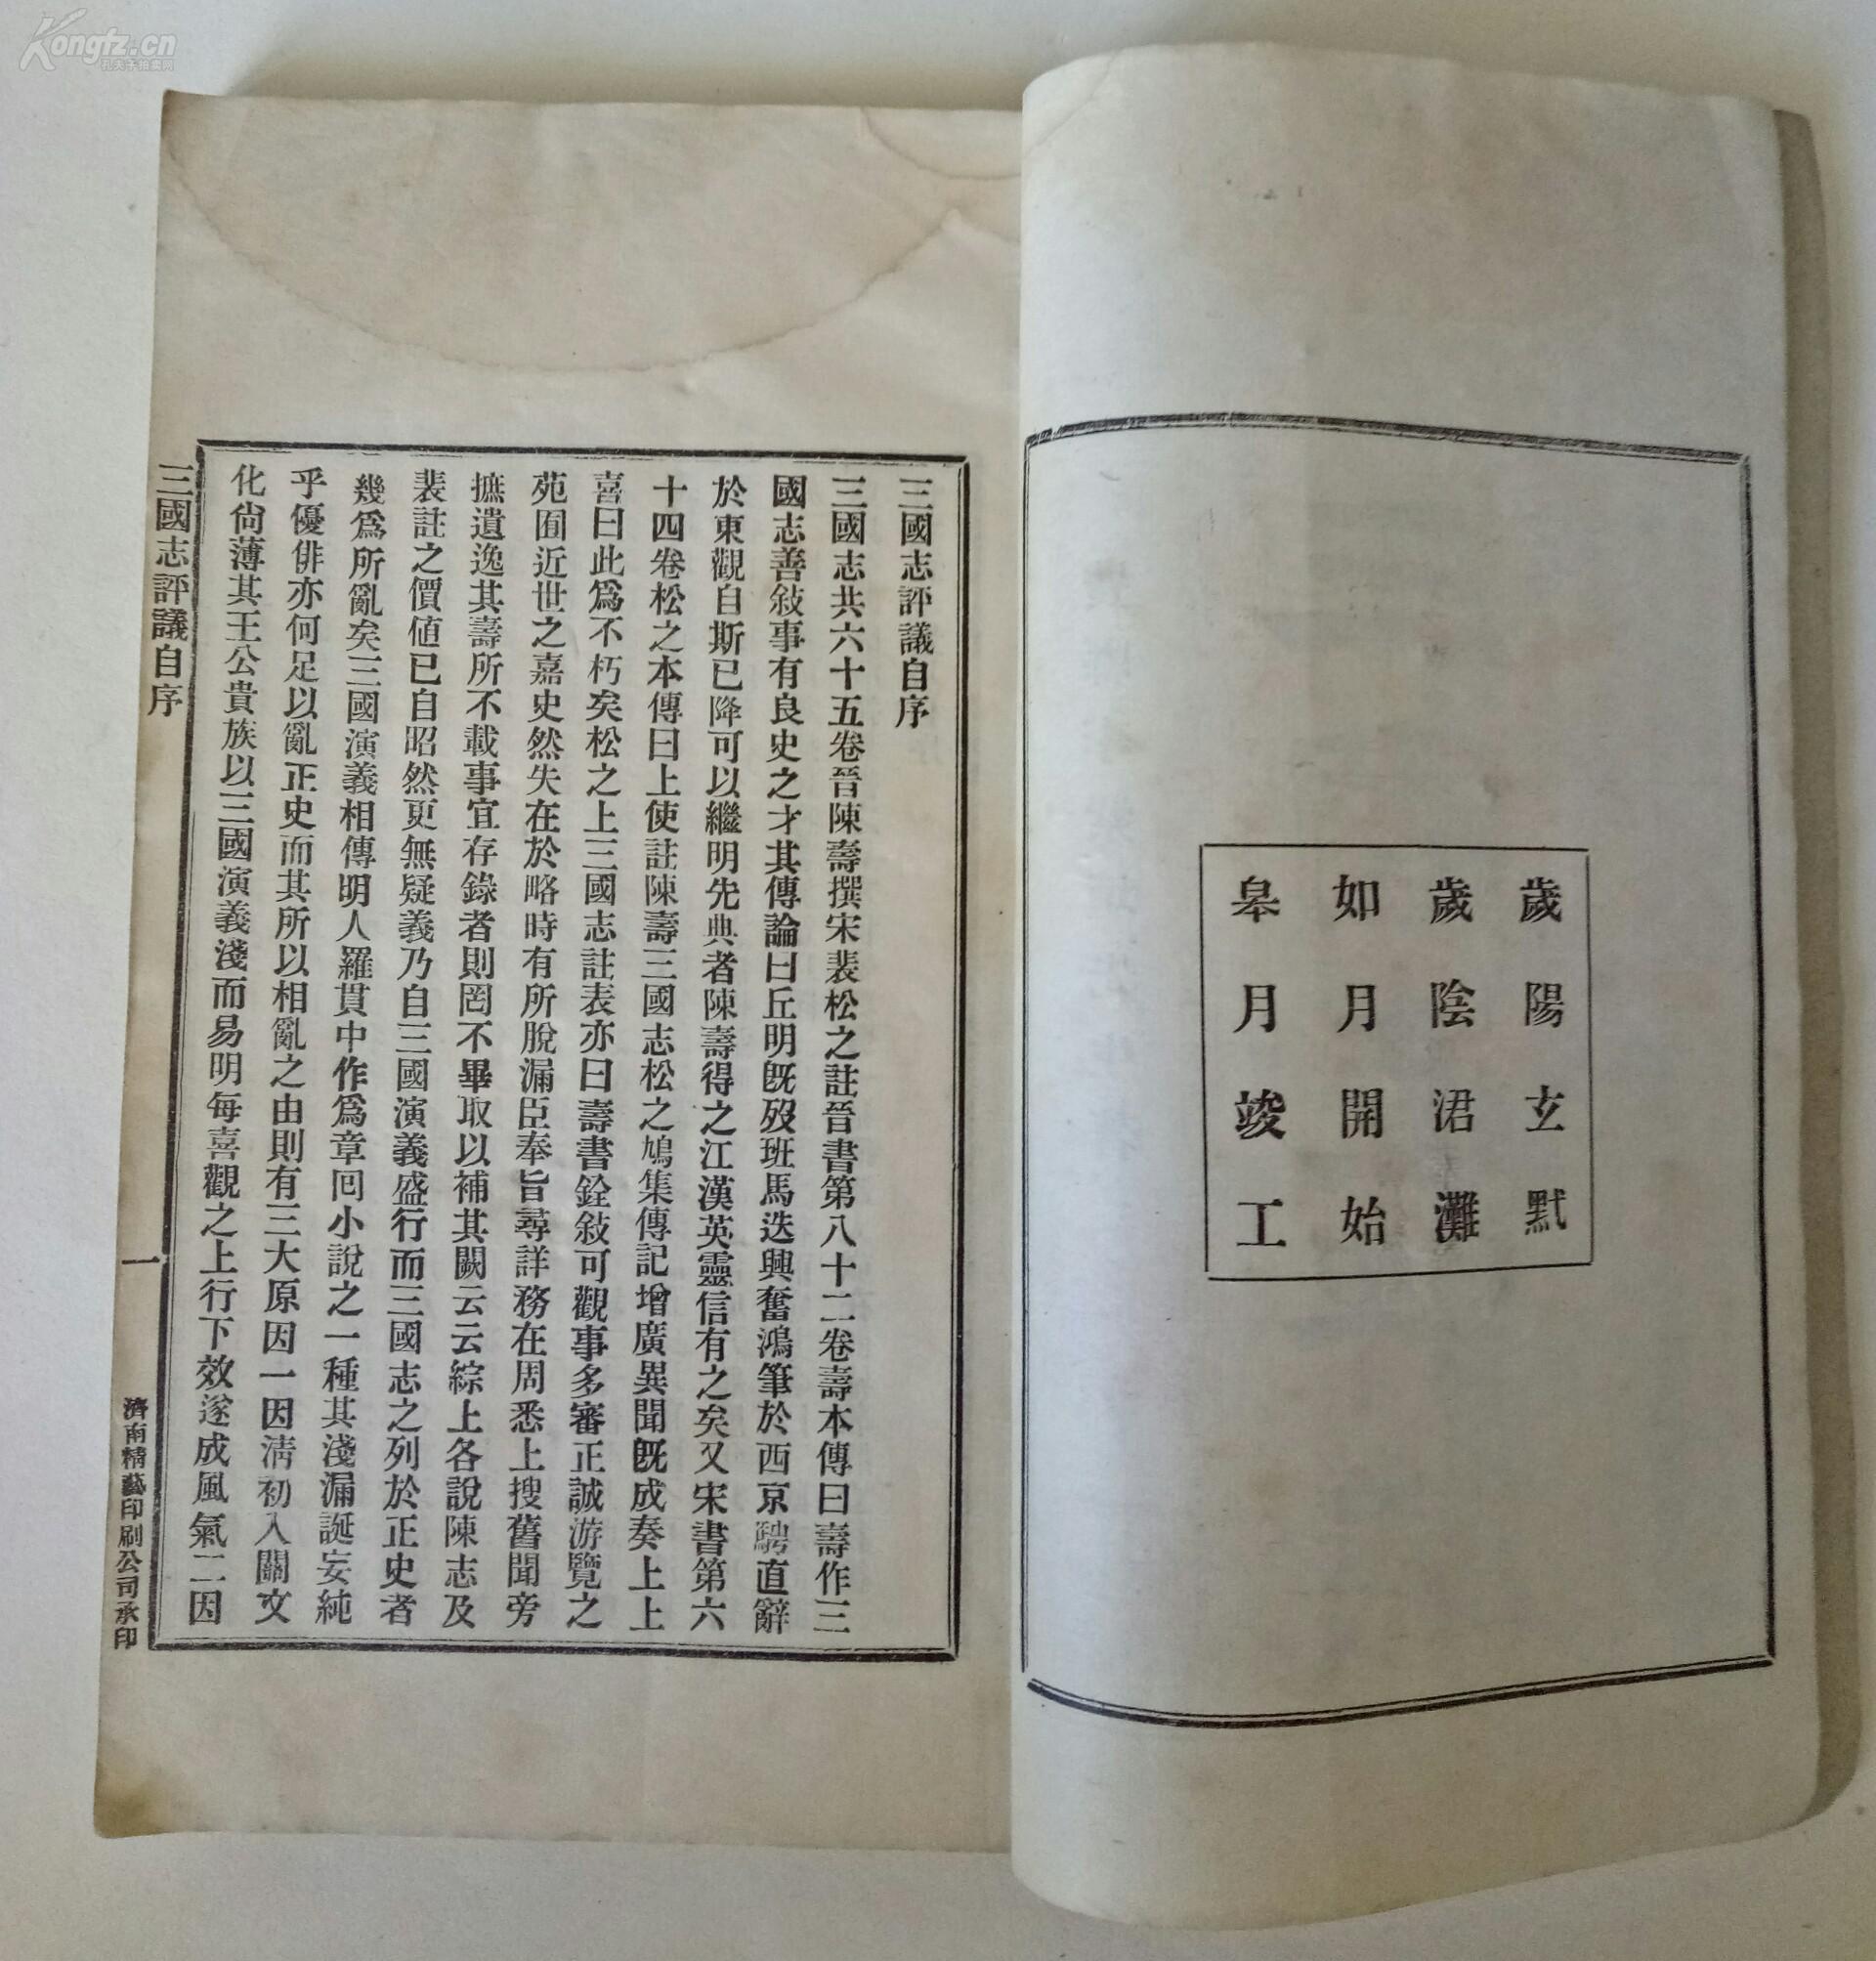 Kongfz.cn
孔夫子拍卖网
歲陽玄黓
歲陰涒灘
如月開始
皋月竣工
三國志評議自序
三國志共六十五卷晉陳壽撰宋裴松之註晉書第八十二卷壽本傳曰壽作三
國志善敍事有良史之才其傳論曰丘明旣歿班馬迭興奮鴻筆於西京騁直辭
於東觀自斯已降可以繼明先典者陳壽得之江漢英靈信有之矣又宋書第六
十四卷松之本傳曰上使註陳壽三國志松之鳩集傳記增廣異聞旣成奏上上
喜曰此爲不朽矣松之上三國志註表亦曰壽書銓敍可觀事多審正誠游覽之
苑囿近世之嘉史然失在於略時有所脫漏臣奉旨尋詳務在周悉上搜舊聞旁
摭遺逸其壽所不載事宜存錄者則罔不畢取以補其闕云云綜上各說陳志及
裴註之價値已自昭然更無疑義乃自三國演義盛行而三國志之列於正史者
幾爲所亂矣三國演義相傳明人羅貫中作爲章回小說之一種其淺漏誕妄純
乎優俳亦何足以亂正史而其所以相亂之由則有三大原因一因淸初入關文
化尙薄其王公貴族以三國演義淺而易明每喜觀之上行下效遂成風氣二因
三國志評議自序
一
濟南精藝印刷公司承印